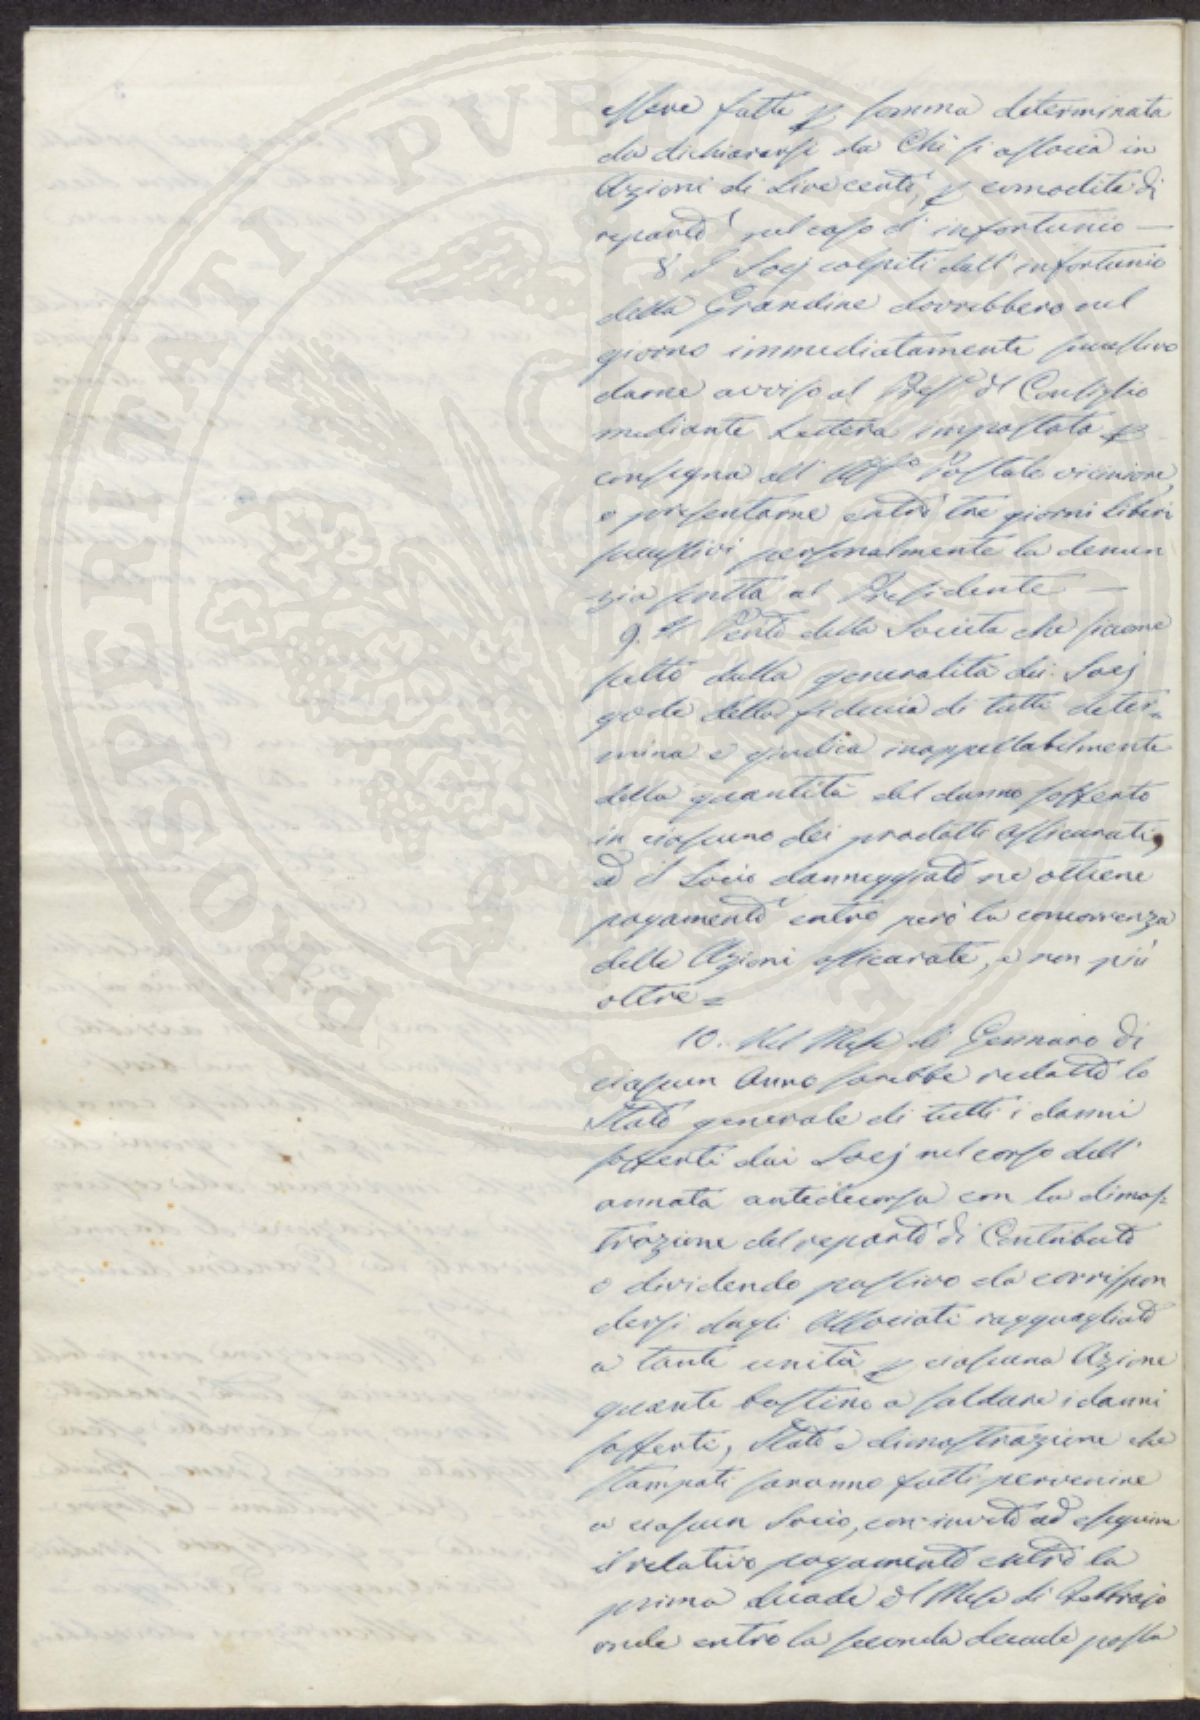 PUBLICAE PROSPERITATI
essere fatte p. somma determinata
da dichiararsi da Chi si associa in
Azioni di Lire cento, p. comodità di
reparto nel caso d'infortunio —
8 I Socj colpiti dall'infortunio
della Grandine dovrebbero nel
giorno immediatamente successivo
darne avviso al Pres.e del Consiglio
mediante Lettera impostata p.
consegna all' Uff.o Postale viciniore,
e presentarne entro tre giorni liberi
successivi personalmente la denun
zia scritta al Presidente —
9. Il Perito della Società che siccome
scelto dalla generalità dei Socj
gode della fiducia di tutti deter=
mina e giudica inappellabilmente
della quantità del danno sofferto
in ciascuno dei prodotti assicurati,
ed il Socio danneggiato ne ottiene
pagamento entro però la concorrenza
delle Azioni assicurate, e non più
oltre =
10. Nel Mese di Gennaro di
ciascun Anno sarebbe redatto lo
Stato generale di tutti i danni
sofferti dai Socj nel corso dell'
annata antidecorsa con la dimos=
trazione del reparto di Contributo
o dividendo passivo da corrispon
dersi dagli Associati ragguagliato
a tante unità p. ciascuna Azione
quante bastino a saldare i danni
sofferti, Stato e dimostrazione che
stampati saranno fatti pervenire
a ciascun Socio, con invito ad eseguire
il relativo pagamento entro la
prima decade del Mese di Febbrajo
onde entro la seconda decade possa